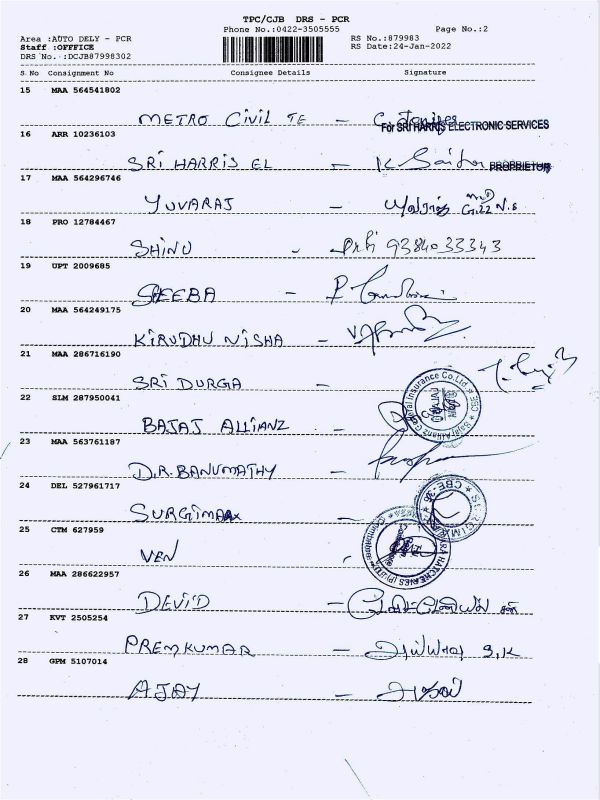 TPC/CJB DRS - PCR
Phone No.:0422-3505555 Page No.:2
Area :AUTO DELY - PCR RS No.:879983
Staff :OFFFICE RS Date:24-Jan-2022
DRS No. :DCJB87998302
S No Consignment No Consignee Details Signature
15 MAA 564541802
METRO CIVIL TE -
For SRI HARRIS ELECTRONIC SERVICES
16 ARR 10236103
SRI HARRIS EL - PROPRIETOR
17 MAA 564296746
YUVARAJ -
18 PRO 12784467
SHINU - 9384033343
19 UPT 2009685
SHEEBA -
20 MAA 564249175
KIRUDHU NISHA -
21 MAA 286716190
SRI DURGA -
22 SLM 287950041
BAJAJ ALLIANZ -
Bajaj Allianz General Insurance Co.Ltd. CBE
23 MAA 563761187
D.R. BANUMATHY -
24 DEL 527961717
SURGIMAX -
CBE-36
25 CTM 627959
VEN
HATCHERIES (P) LTD. Coimbatore
26 MAA 286622957
DEVID -
27 KVT 2505254
PREMKUMAR -
28 GPM 5107014
AJAY -